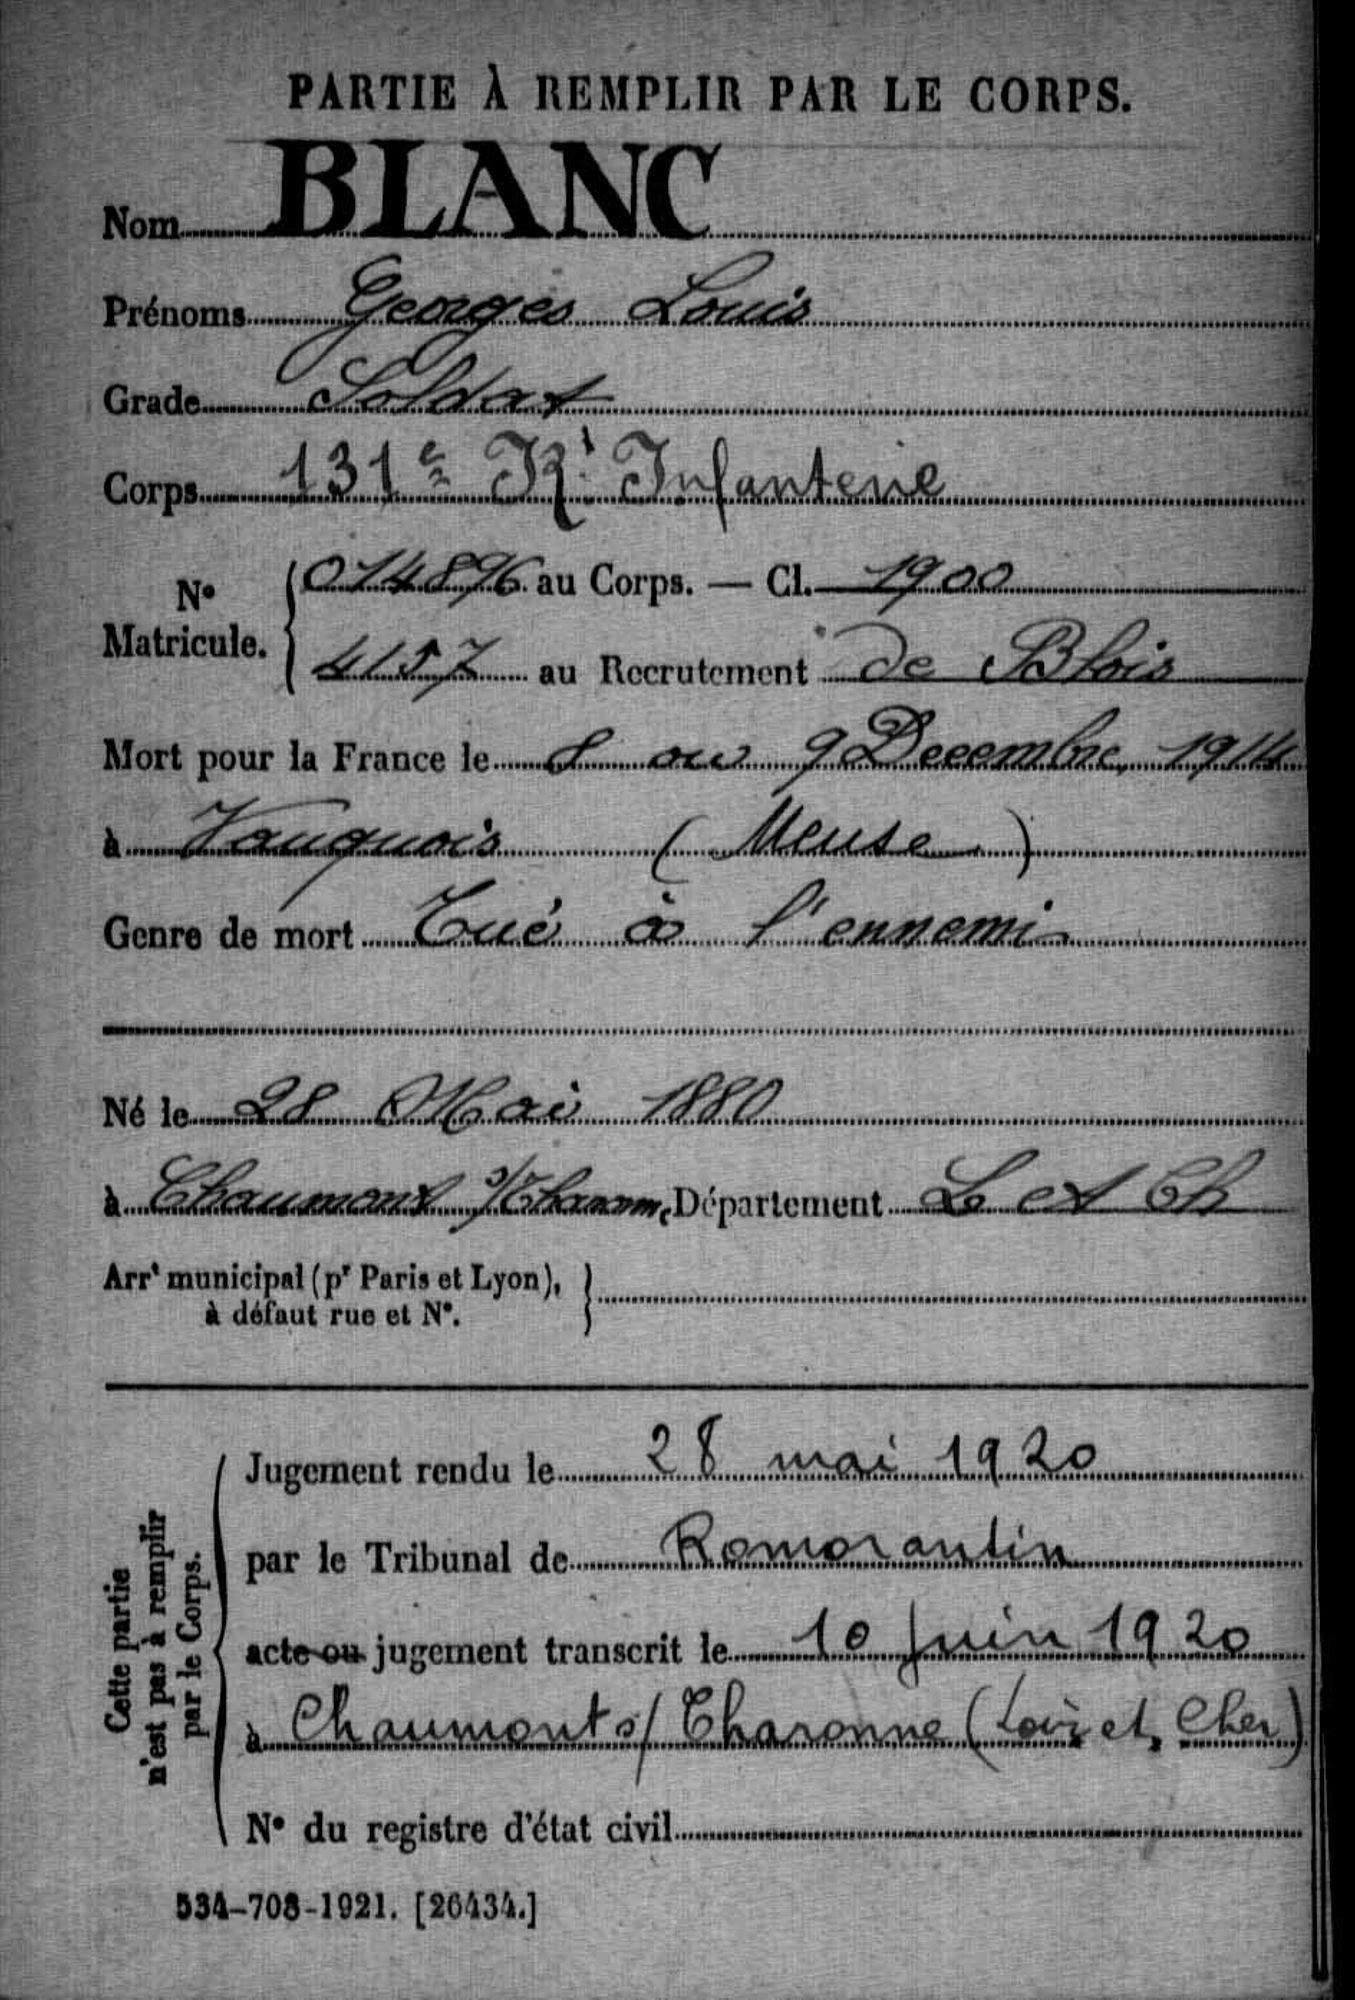 PARTIE À REMPLIR PAR LE CORPS.
Nom BLANC
Prénoms Georges Louis
Grade Soldat
Corps 131e Rt Infanterie
N° Matricule. { 014896 au Corps. — Cl. 1900
4157 au Recrutement de Blois
Mort pour la France le 8 ou 9 Decembre 1914
à Vauquois (Meuse)
Genre de mort Tué à l'ennemi
Né le 28 Mai 1880
à Chaumont s/Tharonne Département L et Ch
Arrt municipal (pr Paris et Lyon), }
à défaut rue et N°.
Cette partie
n'est pas à remplir
par le Corps.
Jugement rendu le 28 mai 1920
par le Tribunal de Romorantin
acte ou jugement transcrit le 10 juin 1920
à Chaumont s/ Tharonne (Loir et Cher)
N° du registre d'état civil
534-708-1921. [26434.]